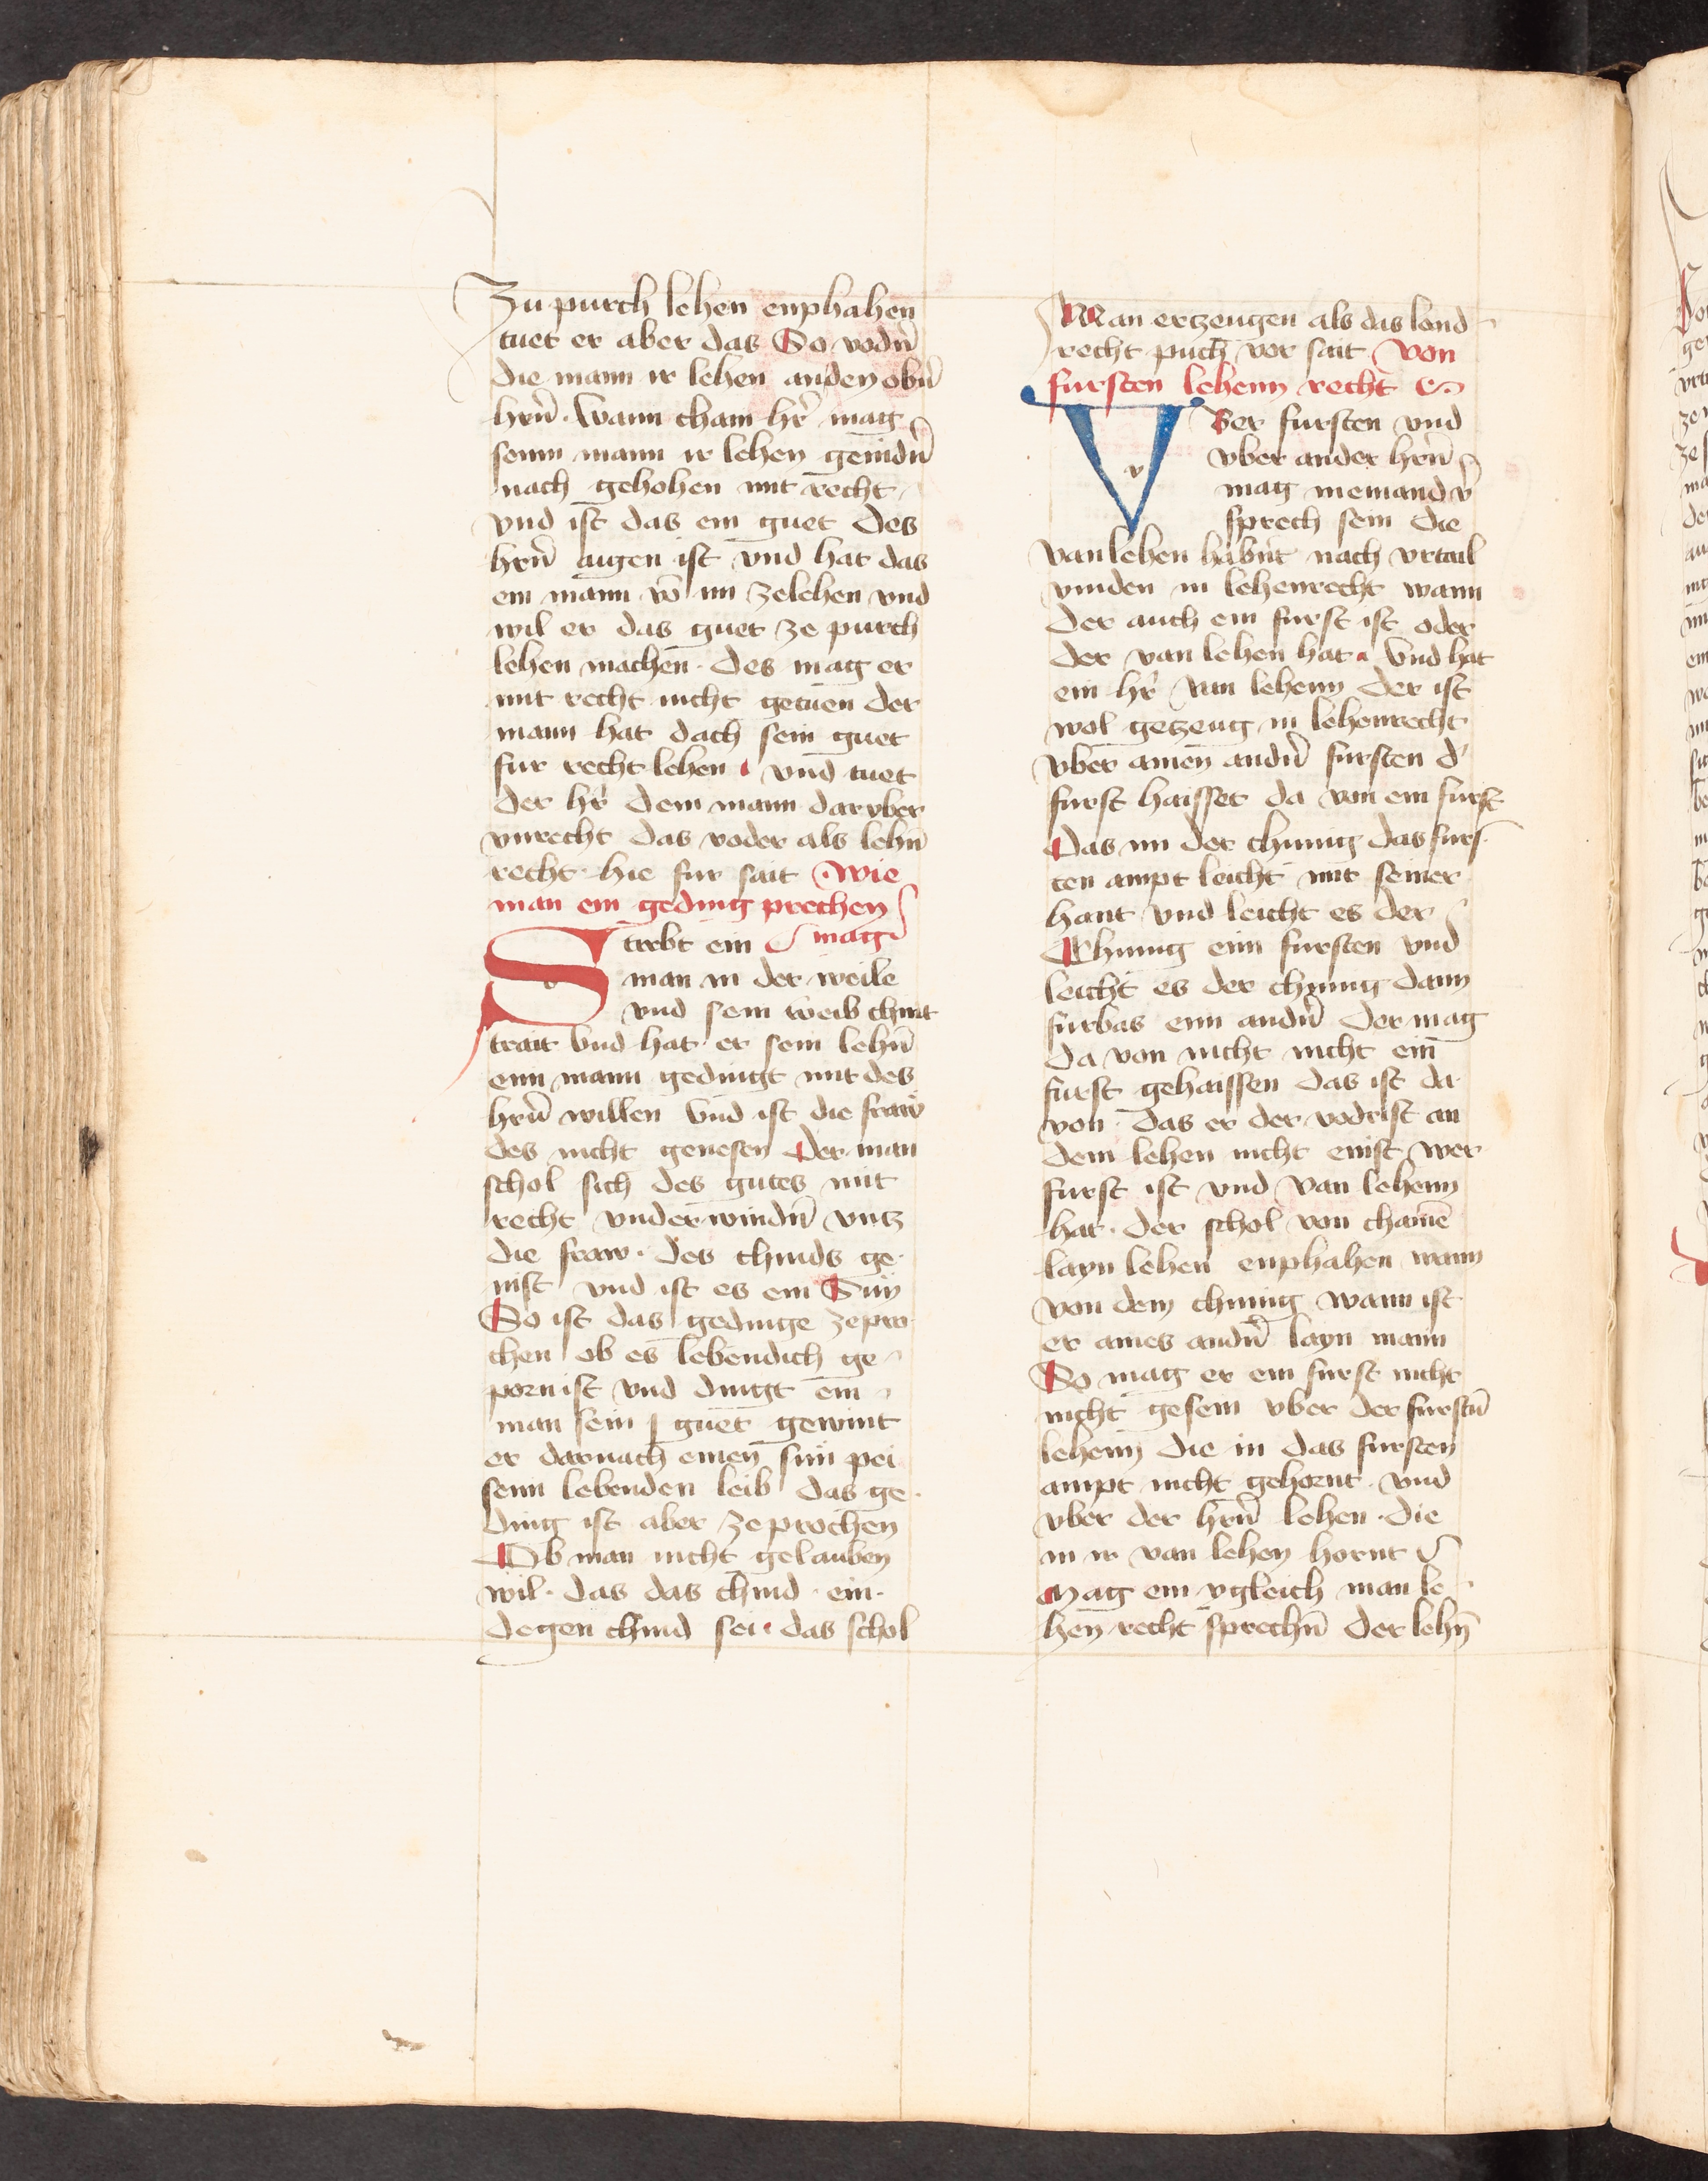 Zu purch lehen enphahen
tuet er aber das So vodn̄
die mann ir lehen an den obn̄
hrn̄ · Wann cham hr̄ mag
senn mann ir lehen genidn̄
nach gehohen mit recht
vnd ist das ein guet des
hrn̄ aigen ist vnd hat das
ein mann vō im ze lehen vnd
wil er das guet ze purch
lehen machen · des mag er
mit recht nicht getuen der
mann hat dach sein guet
fur recht lehen vnd tuet
der hr̄ dem mann darvber
vnrecht das voder als lehn̄
recht hie fur sait · wie
man ein geding prechen
mag
Stirbt ein
man in der weile
vnd sein weib chint
trait Vnd hat er sein lehn̄
einn mann gedingt mit des
hrn̄ willen Vnd ist die fraw
des nicht genesen Der man
schol sich des gutes mit
recht vnderwindn̄ vntz
die fraw · des chinds ge
nist vnd ist es ein Sun
So ist das gedinge zepro
chen ob es lebendich ge
porn ist vnd dingt ein
man sein guet gewint
er darnach einen sun pei
senn lebenden leib das ge
ding ist aber zeprochen
Ob man nicht gelauben
wil · das das chind · ein ·
degen chind sei · das schol
Man ertzeugen als das land
recht puch vor sait Von
fursten lehenn recht
Vber fursten vnd
vber ander hrn̄
mag niemand v̄
sprech sein die
van lehen habnt nach vrtail
vinden in lehenrecht wann
der auch ein furst ist oder
der van lehen hat · Vnd hat
ein hr̄ van lehenn der ist
wol getzeug in lehenrecht
vber ainen andn̄ fursten d'
furst haisset da von ein furst
Das im der chunig das furs
ten ampt leicht mit seiner
hant vnd leicht es der
Chunig einn fursten vnd
leicht es der chunig dann
furbas einn andn̄ der mag
da von nicht nicht ein
furst gehaissen das ist da
von · das er der vodrist an
dem lehen nicht enist wer
furst ist vnd van lehenn
hat · der schol von chaine̅
layn lehen enphahen wann
von dem chunig wann ist
er aines andn̄ layn mann
So mag er ein furst nicht
nicht gesein vber der furstn̄
lehenn die in das fursten
ampt nicht gehornt · vnd
vber der hrn̄ lehen · die
in ir van lehen hornt
Mag ein ygleich man le
hen recht sprechn̄ der lehn̄